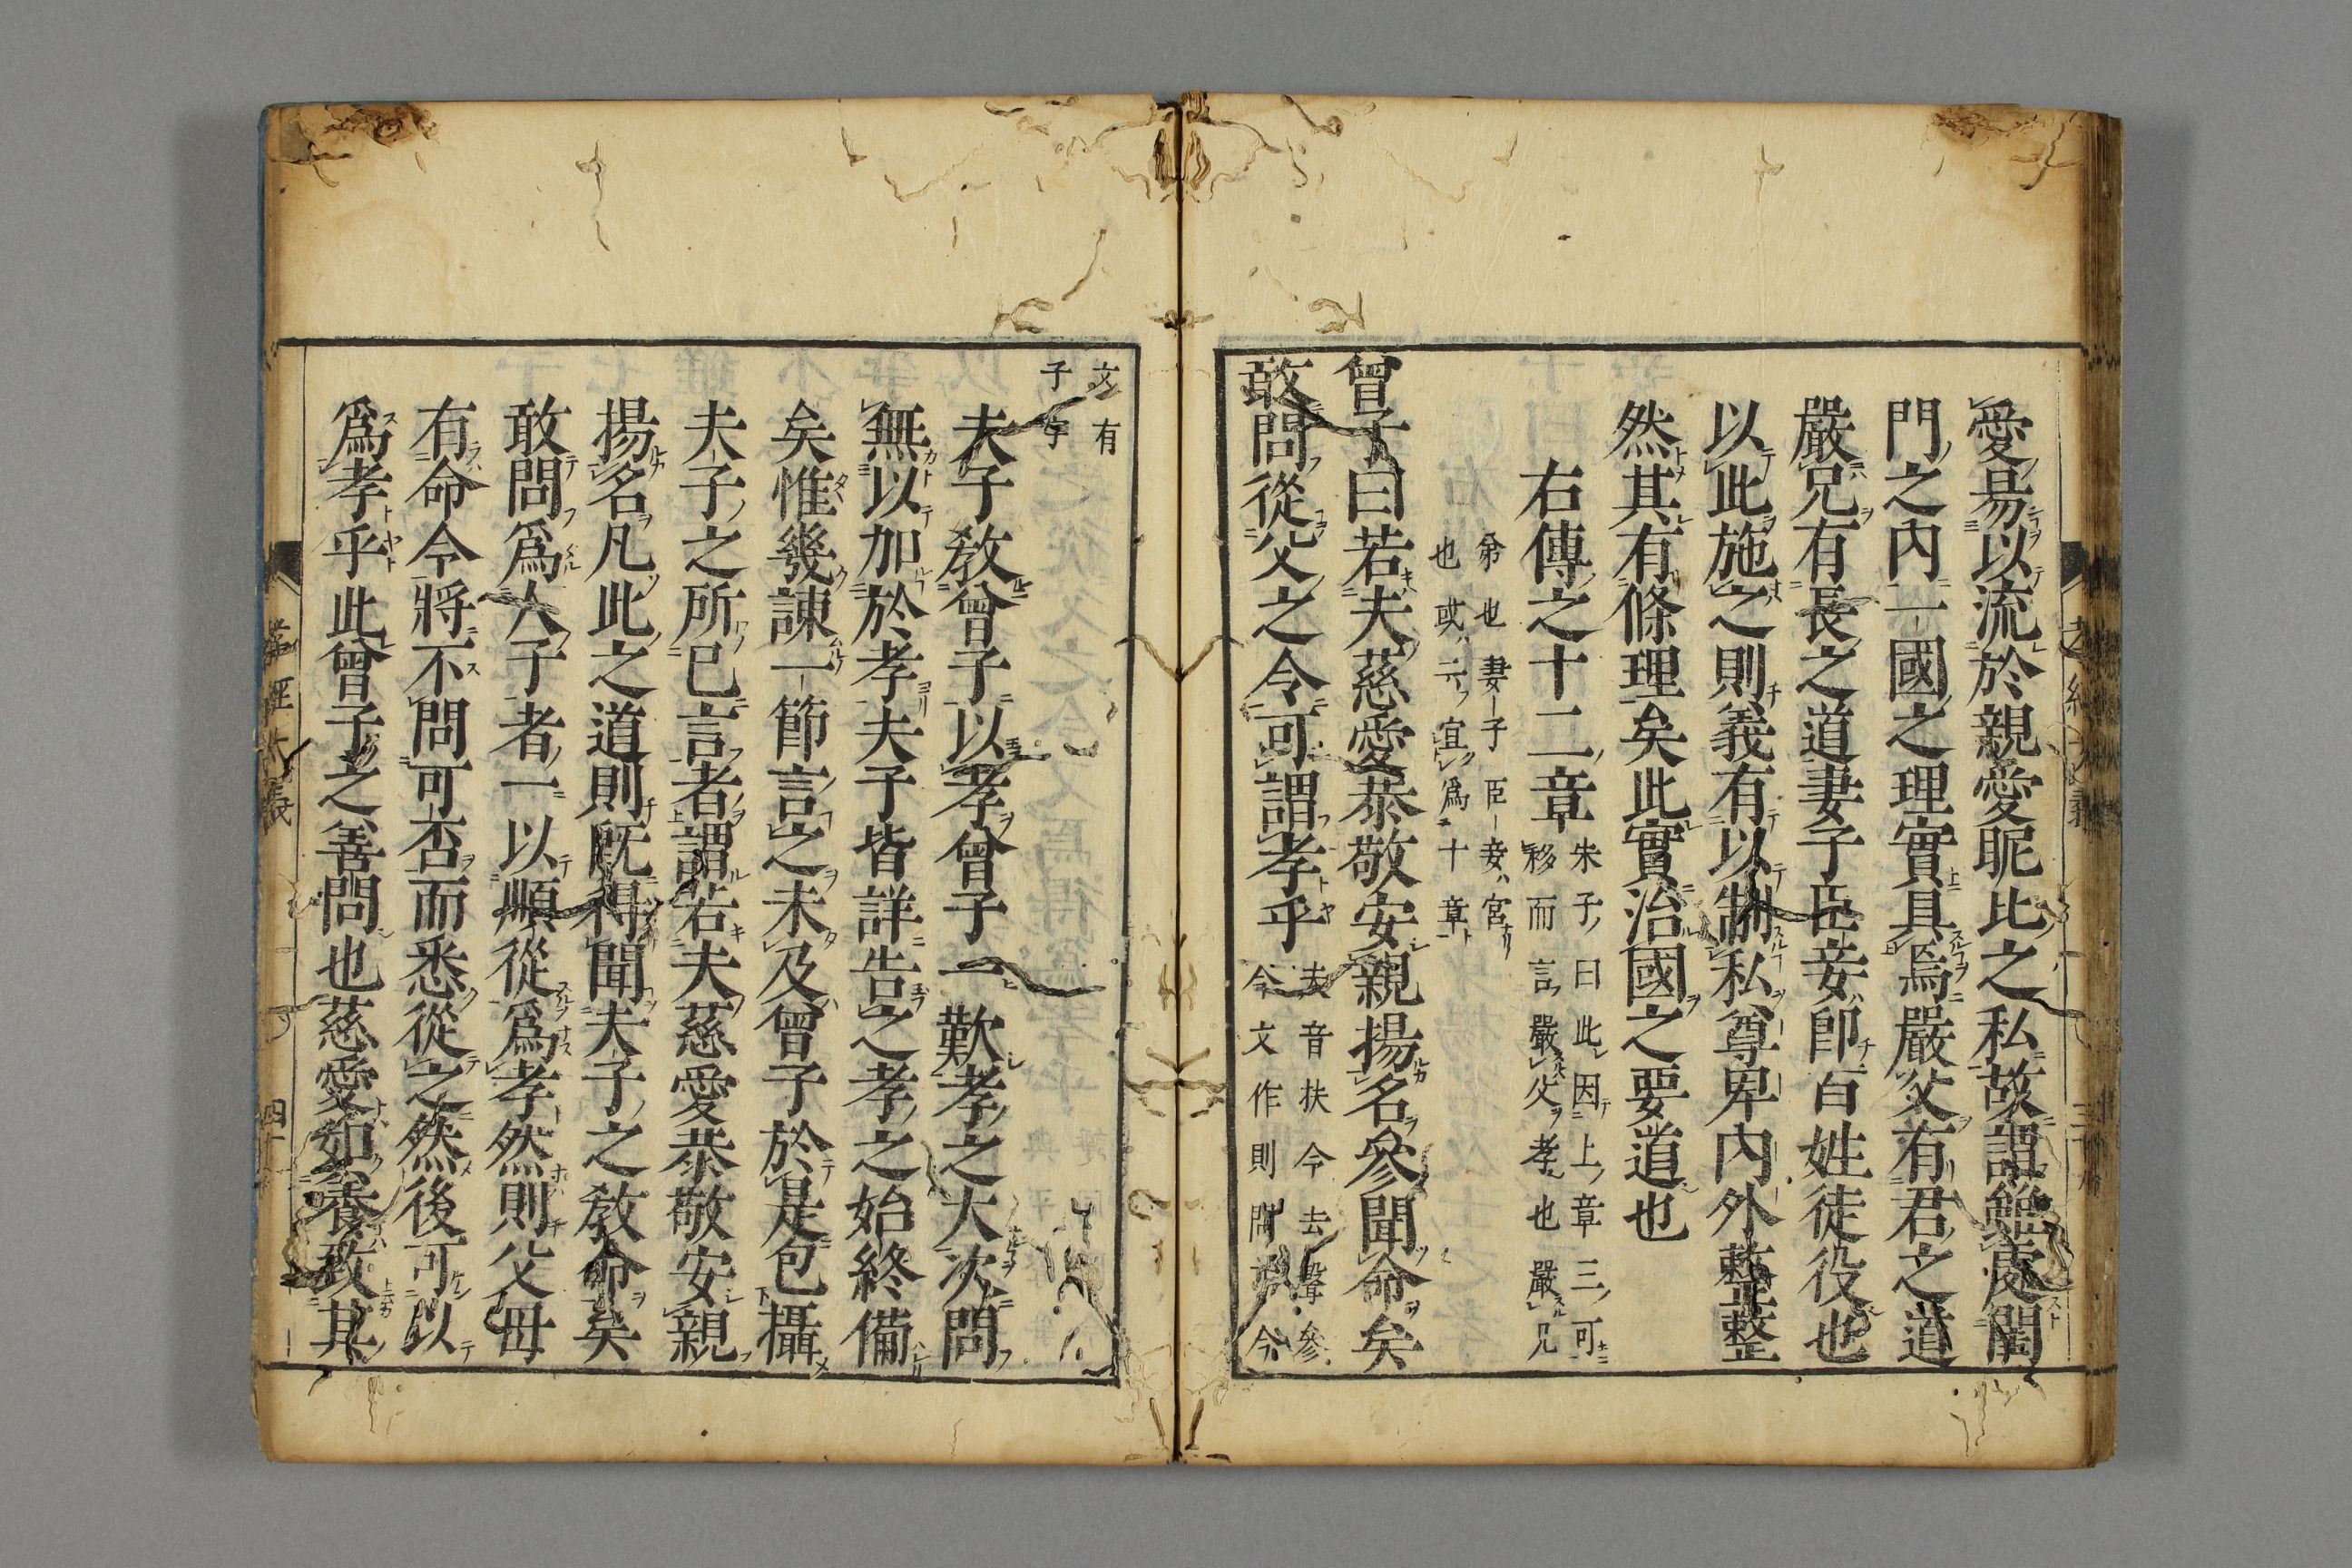 愛易以流於親愛昵比之私故謂雖處閨
門之內一國之理實具焉嚴父有君之道
嚴兄有長之道妻子臣妾卽百姓徒役也
以此施之則義有以制私尊卑內外整整
然其有條理矣此實治國之要道也
右傳之十二章
朱子曰此因上章三可
移而言嚴父孝也嚴兄
弟也妻子臣妾宮
也或云宜爲十章
曾子曰若夫慈愛恭敬安親揚名參聞命矣
敢問從父之令可謂孝乎
夫音扶令去聲參
今文作則聞今
文有
子字
夫子敎曾子以孝曾子一歎孝之大次問
無以加於孝夫子皆詳告之孝之始終備
矣惟幾諫一節言之未及曾子於是包攝
夫子之所已言者謂若夫慈愛恭敬安親
揚名凡此之道則旣得聞夫子之敎命矣
敢問爲人子者一以順從爲孝然則父母
有命令將不問可否而悉從之然後可以
爲孝乎此曾子之善問也慈愛如養致其
孝經大義
四十